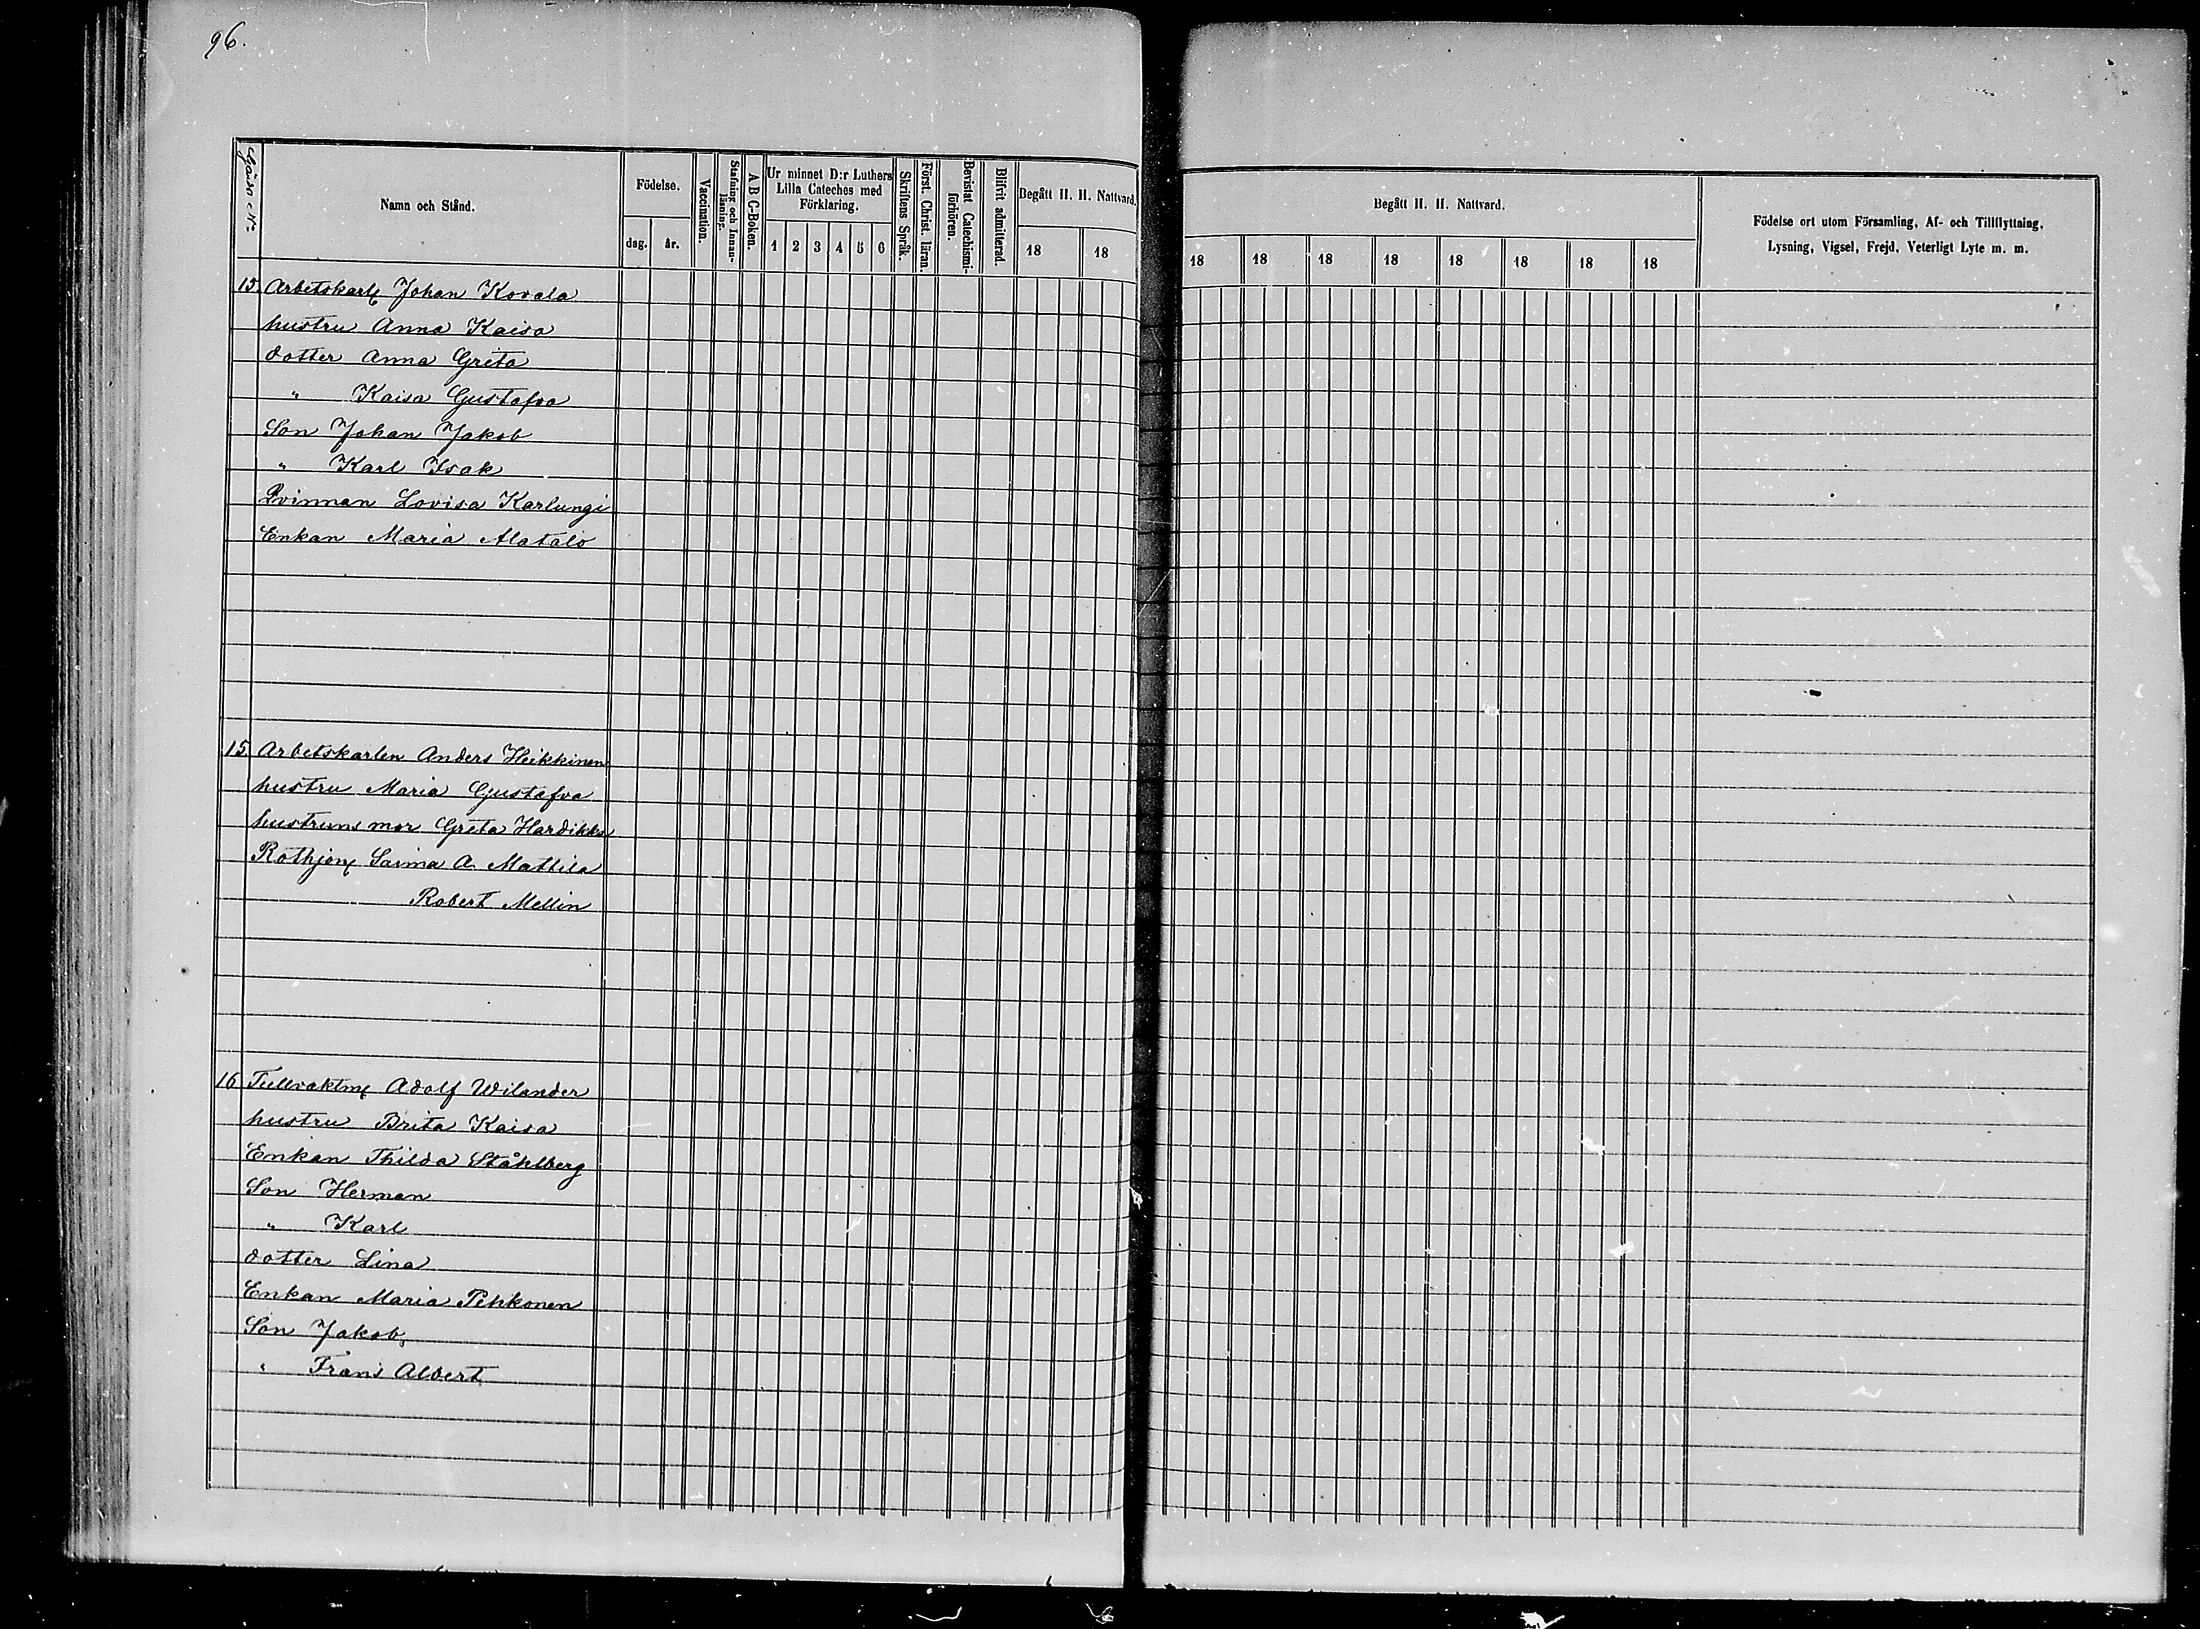 96.
Gårds No
Namn och Stånd.
Födelse.
dag. år.
Vaccination.
Stafning och Innan-
läsning.
A B C-Boken.
Ur minnet D:r Luthers
Lilla Cateches med
Förklaring.
1 2 3 4 5 6
Skriftens Språk.
Först. Christ. läran.
Bevistat Catechismi-
förhören.
Blifvit admitterad.
Begått H. H. Nattvard.
18 18
Begått H. H. Nattvard.
18 18 18 18 18 18 18 18
Födelse ort utom Församling, Af- och Tillflyttning,
Lysning, Vigsel, Frejd, Veterligt Lyte m. m.
15. Arbetskarl Johan Kovala
hustru Anna Kaisa
dotter Anna Greta
" Kaisa Gustafva
Son Johan Jakob
" Karl Isak
Qvinnan Lovisa Karlungi
Enkan Maria Alatalo
15 Arbetskarlen Anders Heikkinen
hustru Maria Gustafva
hustruns mor Greta Hardikka
Rothjon Saima A. Mattila
Robert Mellin
16 Tullvaktm Adolf Wilander
hustru Brita Kaisa
Enkan Thilda Ståhlberg
Son Herman
" Karl
dotter Lina
Enkan Maria Pehkonen
Son Jakob
" Frans Albert